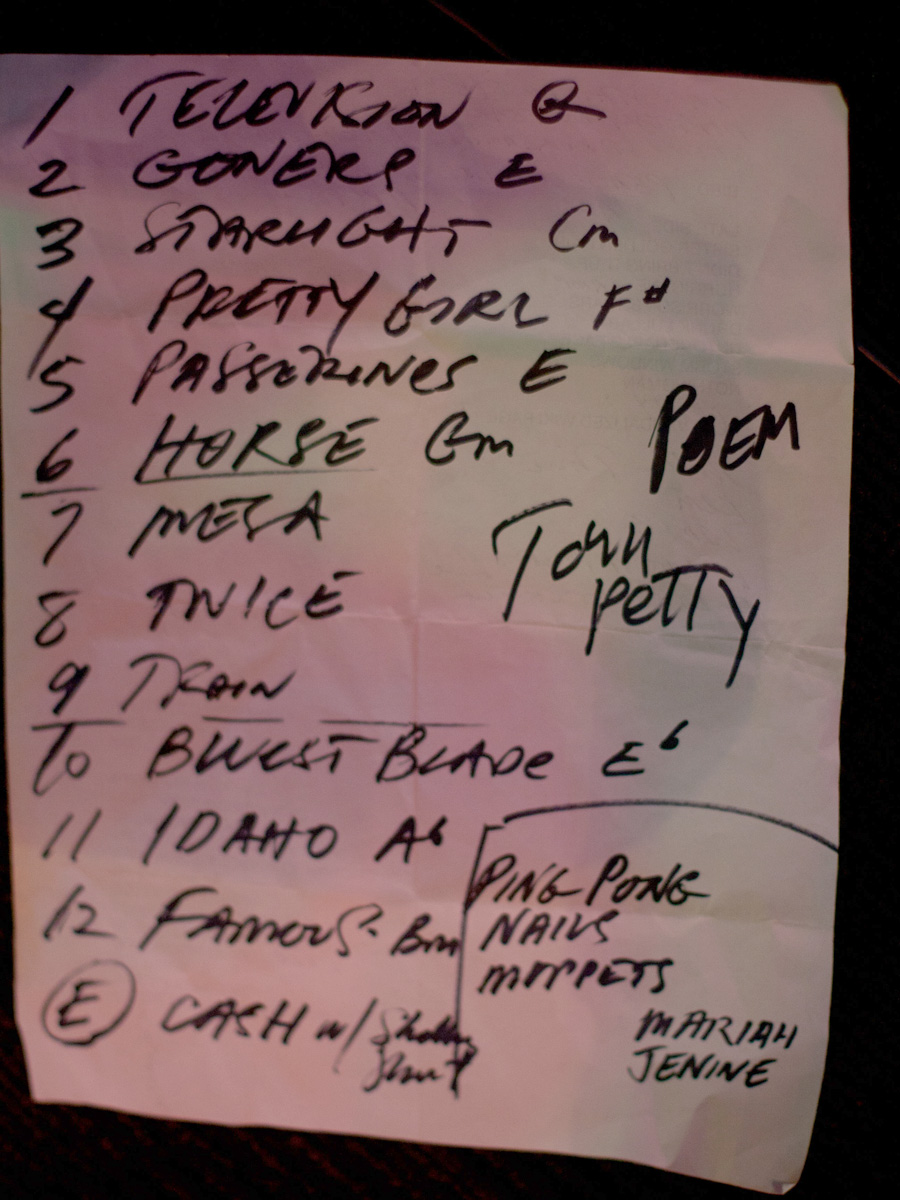 1 TELEVISION G
2 GONERS E
3 STARLIGHT Cm
4 PRETTY GIRL F#
5 PASSERINES E
6 HORSE Gm
POEM
7 MESA
TOM
PETTY
8 TWICE
9 TRAIN
10 BLUEST BLADE E6
11 IDAHO A6
12 FAMOUS Bm
E CASH w/
PING PONG
NAILS
MOPPETS
MARIAH
JENINE